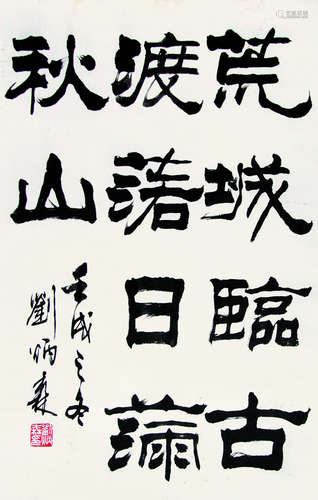 荒城臨古
渡落日满
秋山
壬戌之冬
劉炳森